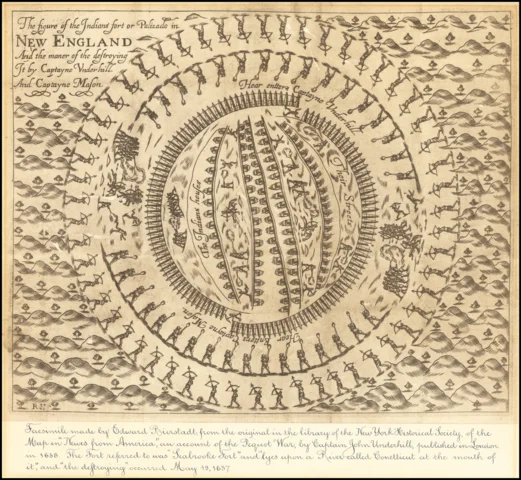 The figure of the Indians fort or Palizado in
NEW ENGLAND
And the maner of the destroying
It by Captayne Vnderhill
And Captayne Mason
Hear entters Captayne Vnderhill
Their Streets
The Indians houses
Hear Entters Captayne Mason
Facsimile made by Edward Bierstadt, from the original in the library of the New York Historical Society, of the
Map in "Newes from America," an account of the Pequot War, by Captain John Underhill, published in London
in 1638. The Fort referred to was "Seabrooke Fort," and "lyes upon a River called Conetticut at the mouth of
it," and "the destroying" occurred May 19, 1637